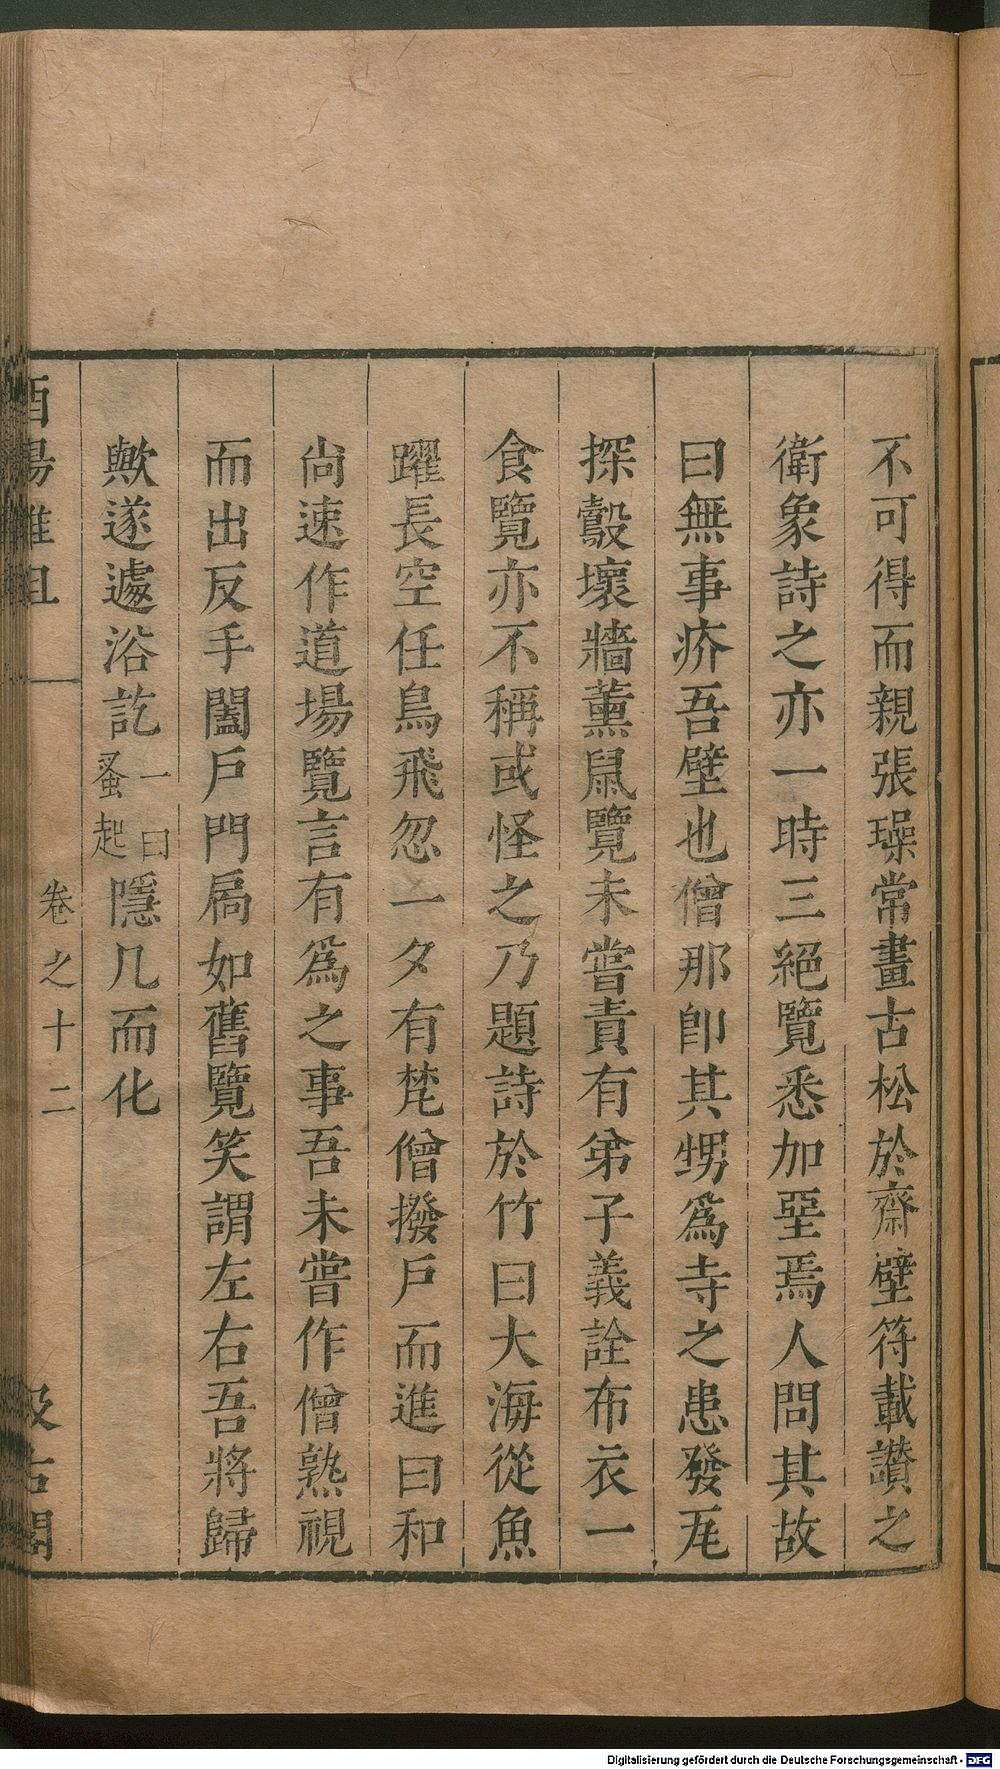 不可得而親張璪常畫古松於齋壁符載讃之
衛象詩之亦一時三絕覽悉加堊焉人問其故
曰無事疥吾壁也僧那卽其甥爲寺之患發瓦
探鷇壞牆薰鼠覽未嘗責有弟子義詮布衣一
食覽亦不稱或怪之乃題詩於竹曰大海從魚
躍長空任鳥飛忽一夕有梵僧撥戶而進曰和
尙速作道場覽言有爲之事吾未嘗作僧熟視
而出反手闔戶門扃如舊覽笑謂左右吾將歸
歟遂遽浴訖一曰蚤起隱几而化
酉陽雜俎 卷之十二 汲古閣
Digitalisierung gefördert durch die Deutsche Forschungsgemeinschaft - DFG